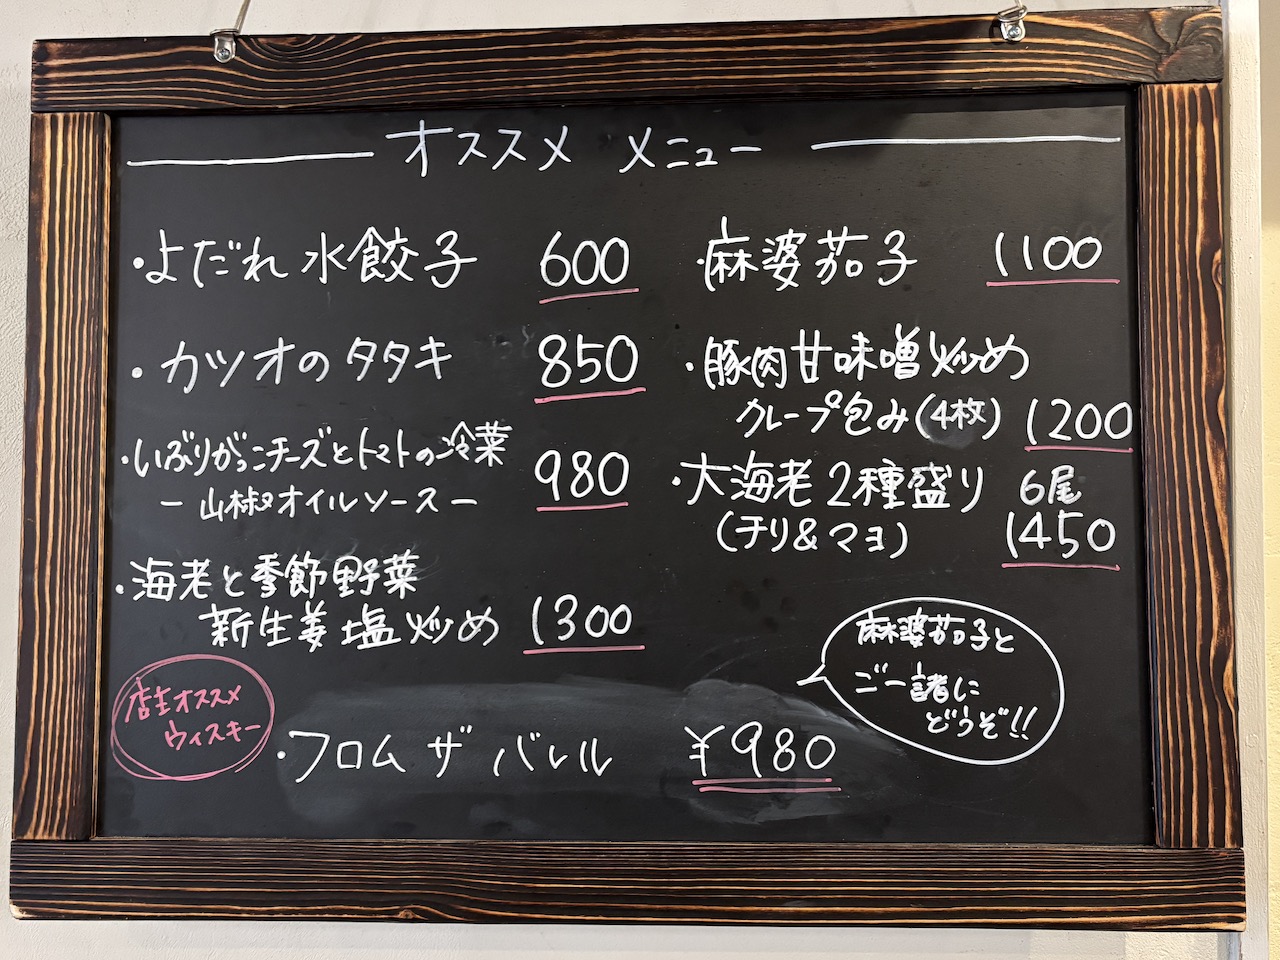 オススメ メニュー
・よだれ水餃子 600
・カツオのタタキ 850
・いぶりがっこチーズとトマトの冷菜
－山椒オイルソース－ 980
・海老と季節野菜
新生姜塩炒め 1300
・麻婆茄子 1100
・豚肉甘味噌炒め
クレープ包み(4枚) 1200
・大海老2種盛り 6尾
(チリ&マヨ) 1450
店主オススメ
ウィスキー
・フロム ザ バレル ¥980
麻婆茄子と
ご一諸に
どうぞ!!